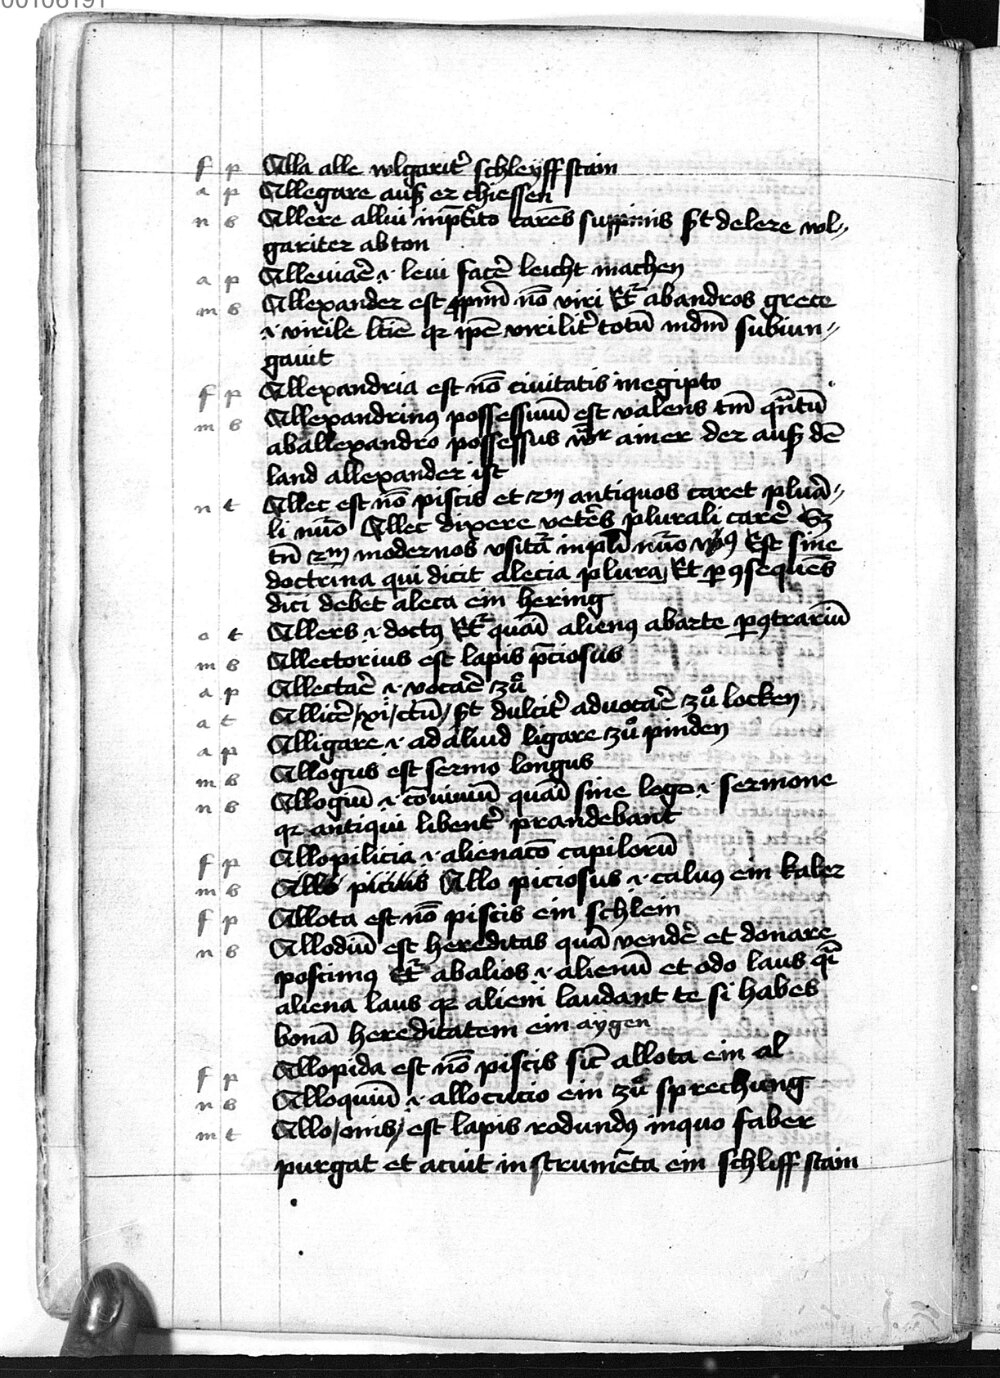 00106191
f p Alla alle wlgarit᷑ schleyff stain
a p Allegare auß er chiessen
n s Allere allevi inp̄t̄ito carēs suppinis s̄t delere wl⸗
gariter ab ton
a p Alleviar̄e .i. levi facē leicht machen
m s Allexander est ppriū nō viri Et̄ᷓ ab andros grece
.i. virile lat̄ie qꝛ ip̄e virilit᷑ totū mdm̄ subiun⸗
gavit
f p Allexandria est nō civitatis in egipto
m s Allexandrinꝯ possessivū est valens tm̄ qn̄tū
ab allexandro possessus ainer der auß dē
land allexander ist
n t Allec est nō piscis et ẜm antiquos caret plurā⸗
li nūo Allec dixere vetēs plurali carē Sꝫ
tn̄ ẜm modernos usitat̄ in pli nūo Est sine
doctrina qui dicit alecia plura Et p ꝯsequēs
dici debet aleca ein hering
a t Allers .i. doctꝯ Et̄ᷓ quasi alienꝯ ab arte p ꝯtrariū
m s Allectorius est lapis p̄ciosus
a p Allectar̄e .i. vocar̄e zů
a t Allicē/xi/ctū/ s̄t dulcit᷑ advocar̄e zů locken
a p Alligare .i. ad aliud ligare zů pinden
m s Allogus est sermo longus
n s Allogiū .i. cōviviū quasi sine logo .i. sermone
qꝛ antiqui libent᷑ prandebant
f p Allopilicia .i. alienac̄o capilorū
m s Allo piciosus .i. calvꝯ ein kaler
f p Allota est nō piscis ein schlein
n s Allodiū est hereditas quā vendē et donare
possimꝯ Et̄ᷓ ab alios .i. alienū et odo laus q̄i
aliena laus qꝛ alieni laudant te si habes
bonā hereditatem ein aygen
f p Allopida est nō piscis sic̄ allota ein al
n s Alloquiū .i. allocucio ein zů sprechung
m t Allo/onis/ est lapis rodundꝯ in quo faber
purgat et acuit instrumēta ein schliff stain